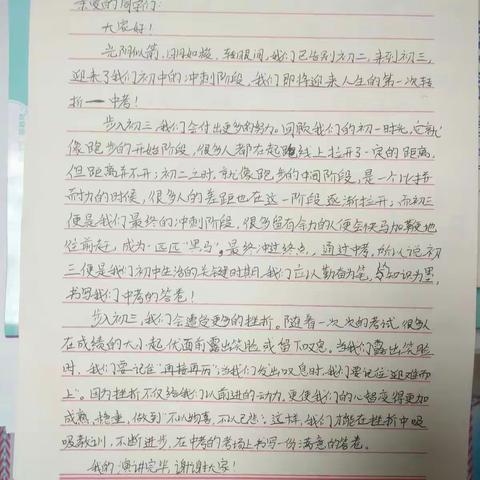 亲爱的同学们:
大家好!
光阴似箭,日月如梭,转眼间,我们已告别初二,来到初三,
迎来了我们初中的冲刺阶段,我们即将迎来人生的第一次转
折——中考!
步入初三,我们会付出更多的努力。回顾我们的初一时光,它就
像跑步的开始阶段,很多人都在起跑线上拉开了一定的距离,
但距离并不开;初二之时,就像跑步的中间阶段,是一个比拼
耐力的时候,很多人的差距也在这一阶段逐渐拉开,而初三
便是我们最终的冲刺阶段,很多留有余力的人便会快马加鞭地
往前赶,成为一匹匹“黑马”,最终冲过终点,通过中考,所以说初
三便是我们初中生活的关键时期,我们应以勤奋为笔,以知识为墨,
书写我们中考的答卷!
步入初三,我们会遭受更多的挫折。随着一次次的考试,很多人
在成绩的大小起伏面前露出笑脸或留下叹息。当我们露出笑脸
时,我们要记住“再接再厉”;当我们发出叹息时,我们要记住“迎难而
上”。因为挫折不仅给我们以前进的动力,更使我们的心智变得更加
成熟、稳重,做到“不以物喜,不以己悲”;这样,我们才能在挫折中吸
吸教训,不断进步,在中考的考场上书写一份满意的答卷。
我的演讲完毕,谢谢大家!